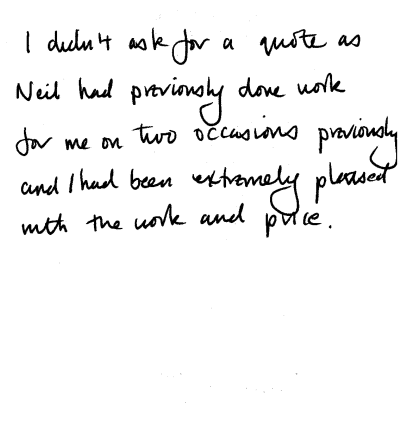 I didn't ask for a quote as
Neil had previously done work
for me on two occasions previously
and I had been extremely pleased
with the work and price.